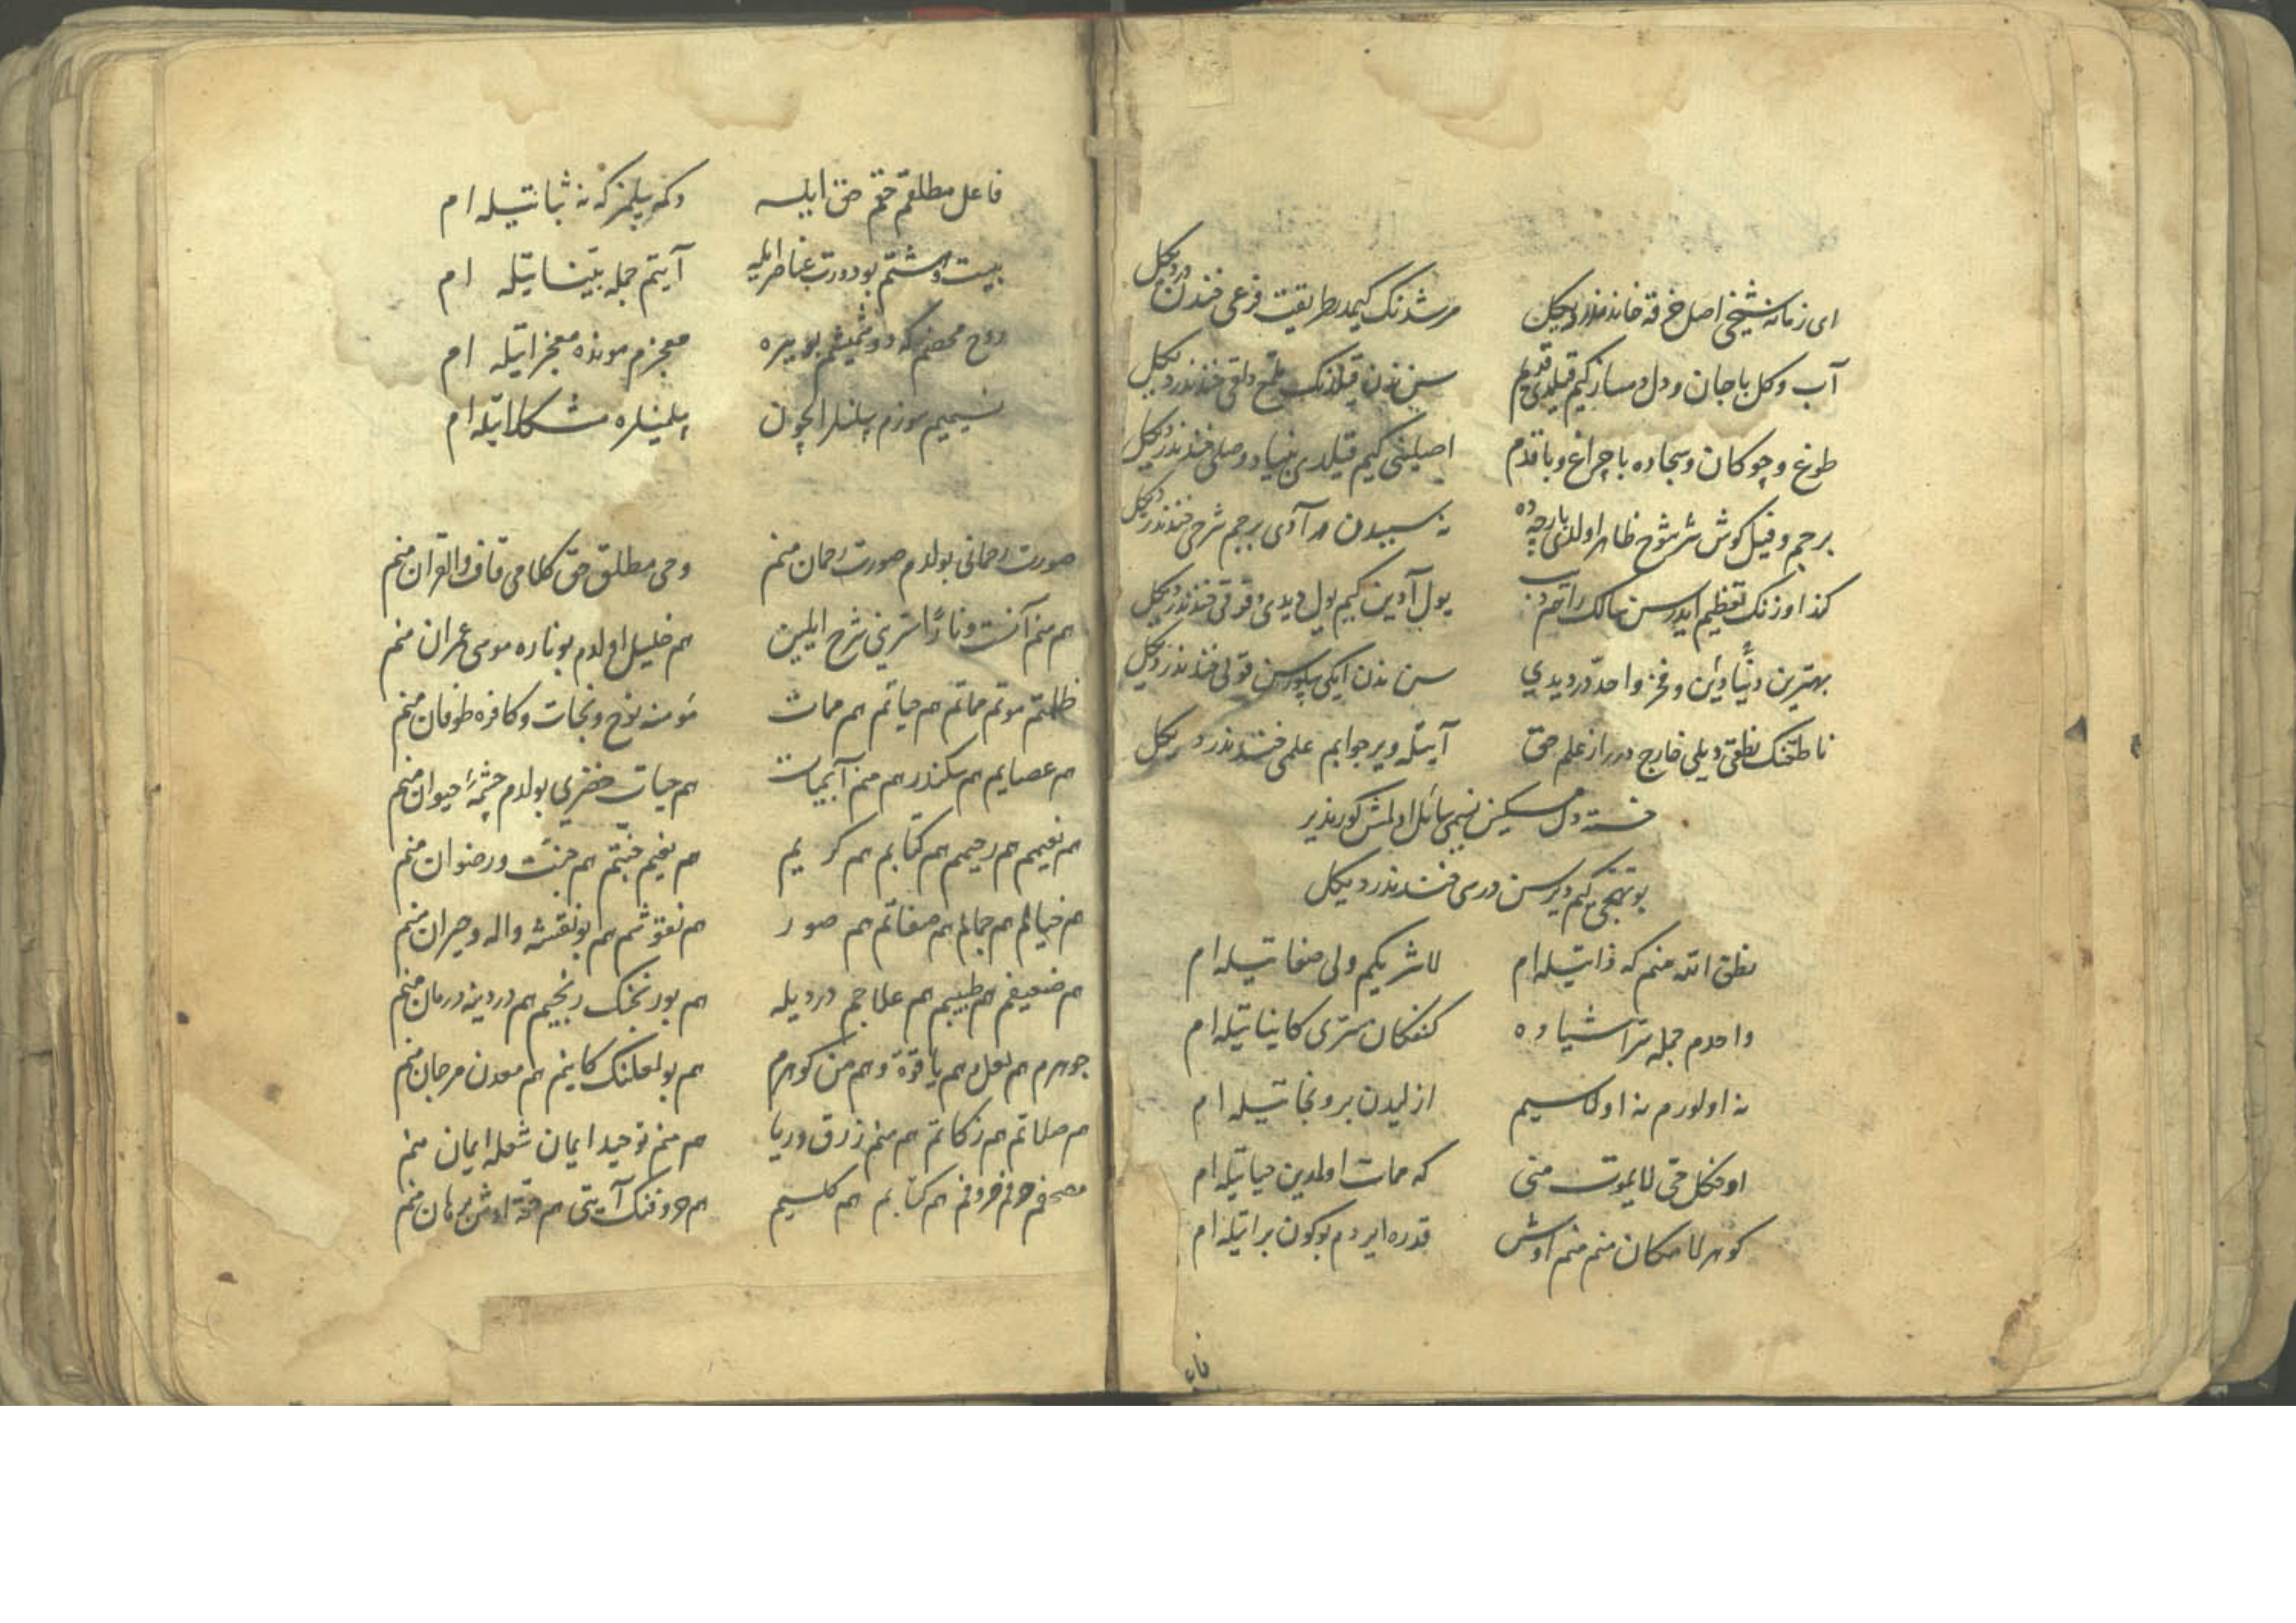 ای زمانه شیخی اصل خرقه خاندندر دیکل مرشدنک کیمدر طریقت فرعی فندن دیکل
آب وکل با جان ودل دمساز کیم قیلدی سن ندن قیلدنک ملمع دلقی فندندر دیکل
طوغ وچوکان وسجاده با چراغ وبا قدم اصلینی کیم قیلدی بنیاد وصلی فندندر دیکل
برچم وفیل کوش ظاهر اولدی نه سببدن در آدی برچم شرحی فندندر دیکل
کندا وزنک تعظیم ایدرسن سالک یول آدین کیم یول دیدی فندندر دیکل
بهترین دنیا ودین وفخر واحد در دیدی سن ندن ایکی بیلورسن قولی فندندر دیکل
ناطقنک نطقی دیلی خارج درر از علم حق آیتله ویر جوابم علمی فندندر دیکل
خسته دل مسکین نسیمی سائل اولمش کورندیر
کیم دیرسن درسی فندندر دیکل
نطق الله منم که ذاتیله ام لاشریکم ولی صفاتیله ام
واحدم جمله اشیاده کنفکان سری کایناتیله ام
نه اولورم نه اولاسیم ازلیدن برو نجاتیله ام
اوفکل حی لایموت منی که ممات اولدین حیاتیله ام
کوهر لامکان منم منم اوش قدره ایردم بوکون براتیله ام
فا
فاعل مطلقم حق ایله دکمه بیلمز که نه ثباتیله ام
بیست وهشتم بو دورت عناصر ایله آیتم جمله بیناتیله ام
روح محضم که معجزم موندہ معجزاتیله ام
نسیمیم سوزم بیلنلر ایچون بیلمینلره مشکلاتیله ام
صورت رحمانی بولدم صورت رحمان منم وحی مطلق حق کلامی قاف والقران منم
هم منم آنست ونارا سرینی شرح ایلین هم خلیل اولدم بو ناره موسی عمران منم
ظلمتم موتم مماتم هم حیاتم هم ممات مؤمنه نوح ونجات وکافره طوفان منم
هم عصایم هم سکندر هم منم آبحیات هم حیات خضری بولدم چشمهٔ حیوان منم
هم نعیمم هم رحیمم هم کتابم هم کریم هم نعیم جنتم هم جنت ورضوان منم
هم خیالم هم جمالم هم صفاتم هم صور هم نقوشم هم بو نقشه واله وحیران منم
هم ضعیفم هم طبیبم هم علاجم دردیله هم بو رنجنک رنجیم هم دردینه درمان منم
جوهرم هم لعل هم یاقوة وهم من کوهرم هم بو لعلنک کانیم هم معدن مرجان منم
هم صلاتم هم زکاتم هم منم زرق وریا هم منم توحید ایمان شعله ایمان منم
مصحفم حرفم حروفم هم کتابم هم کلیم هم حروفنک آیتی هم حقه اوش برهان منم